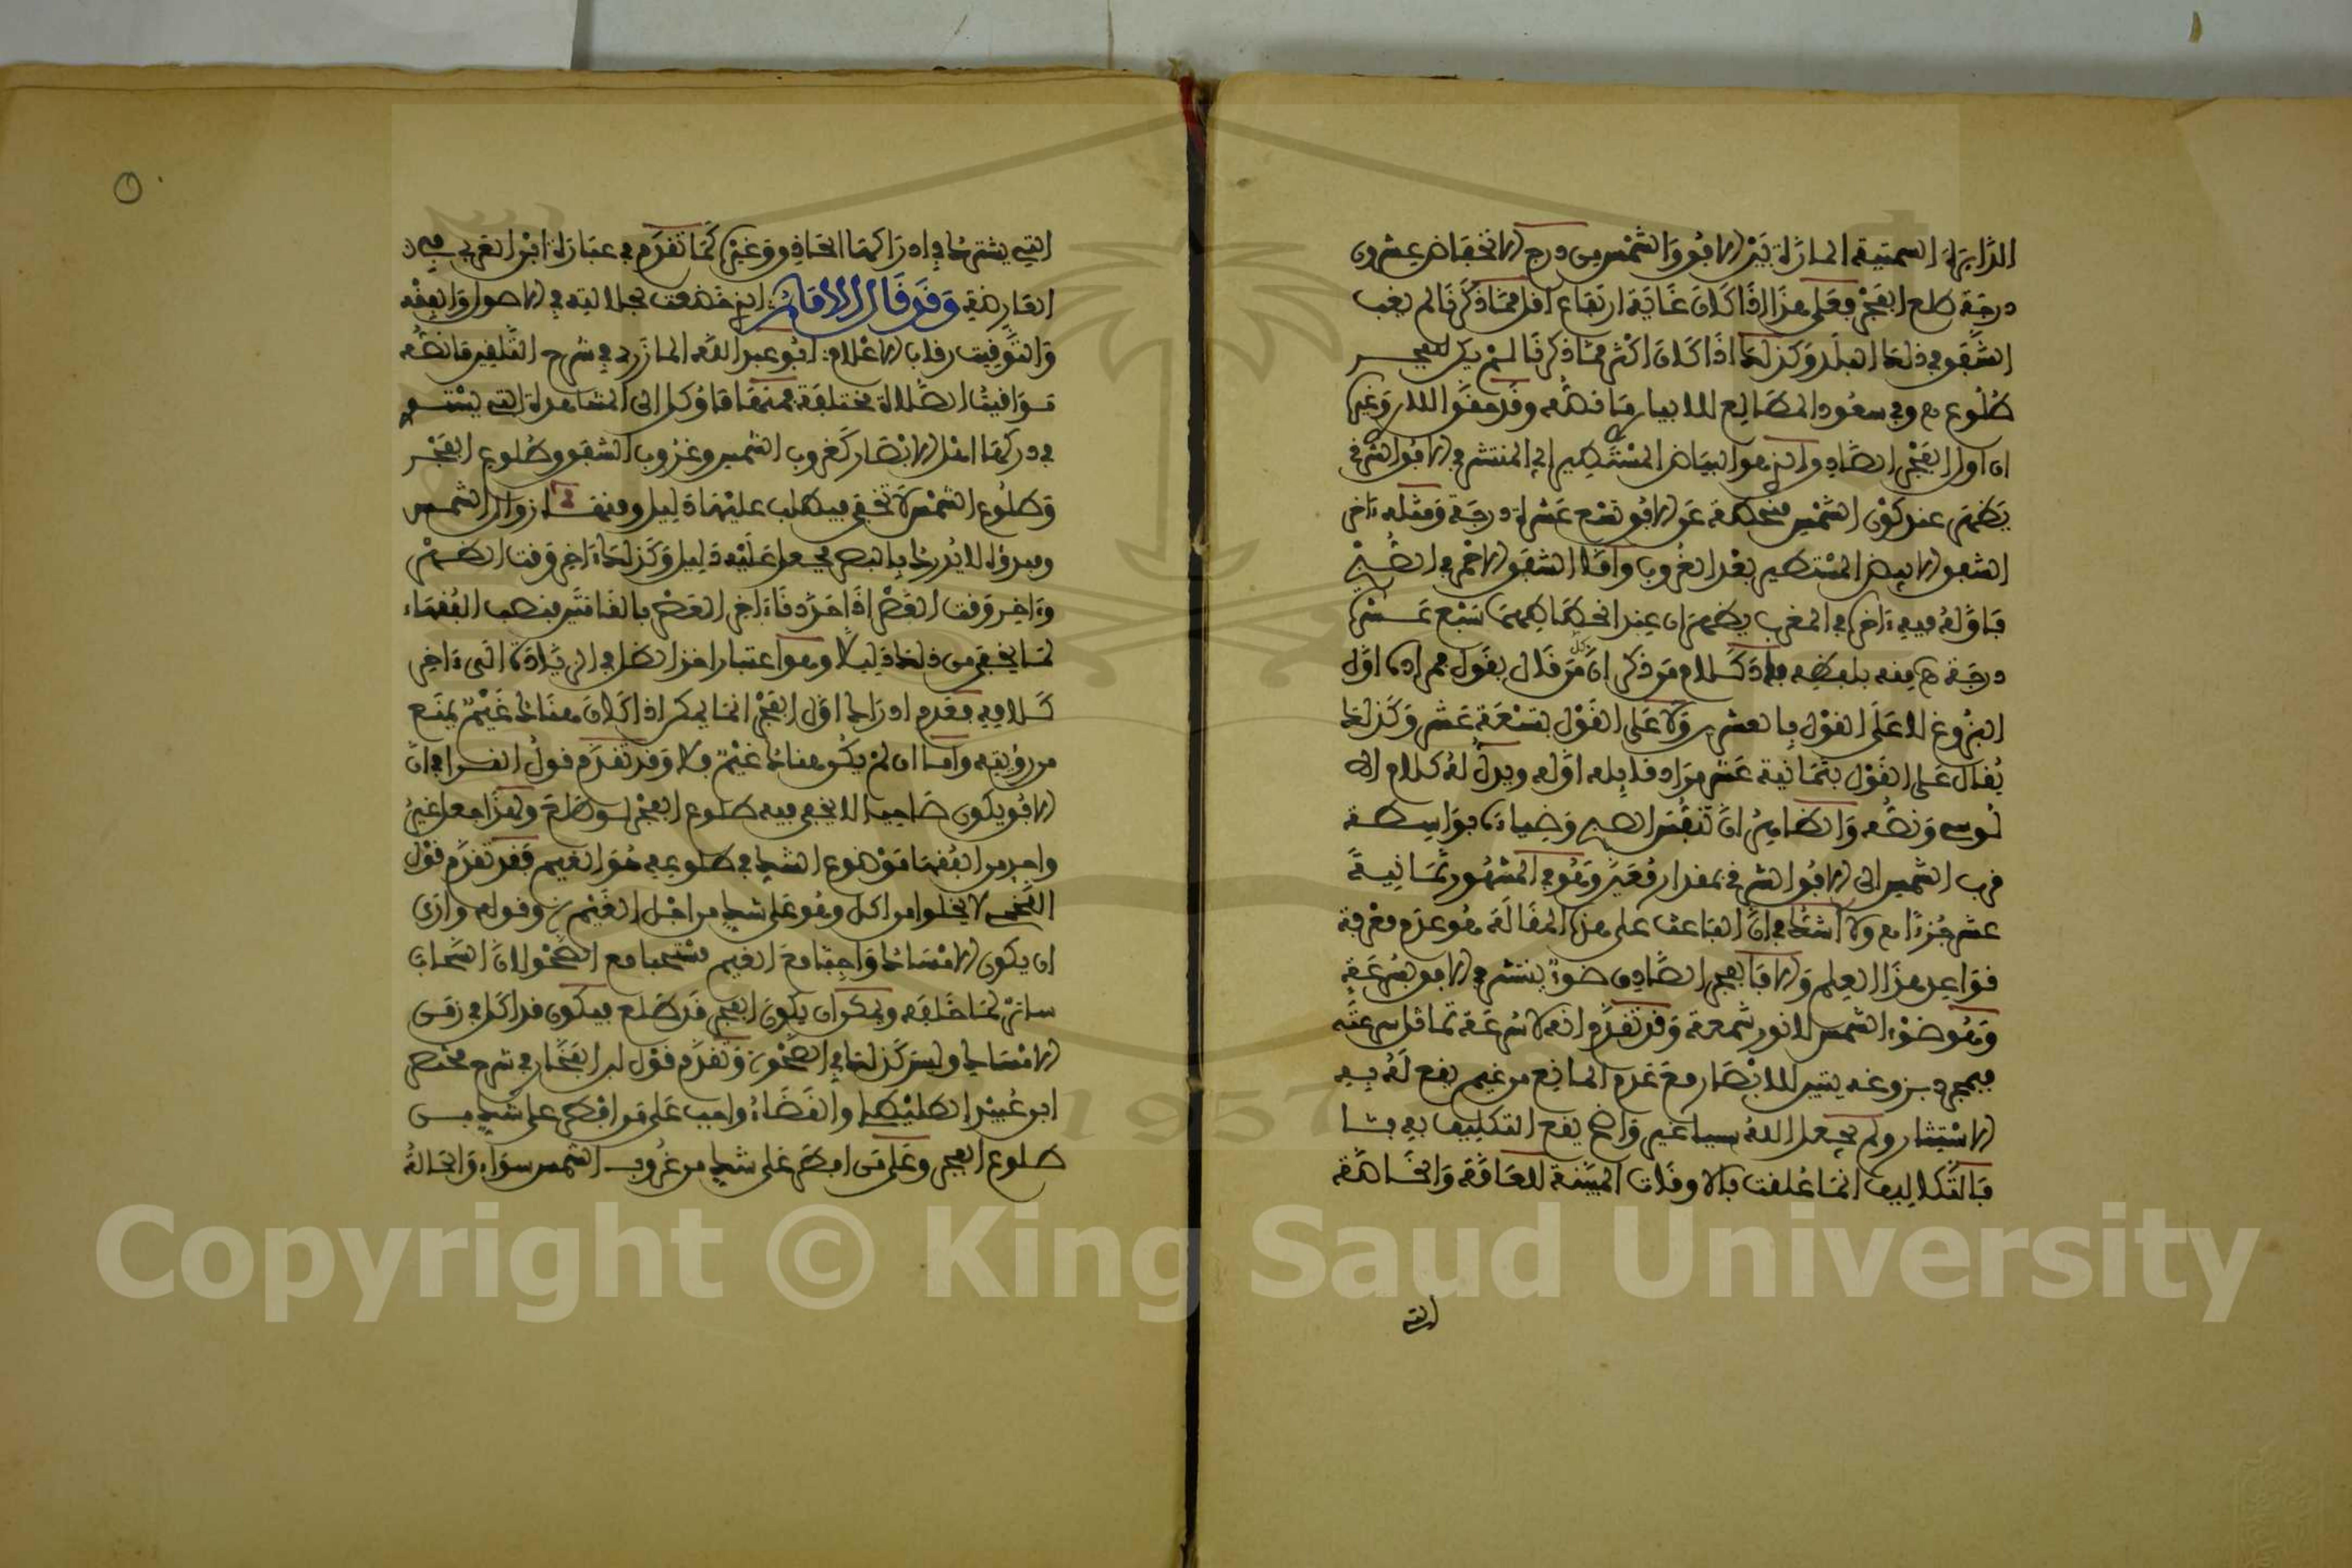 الدايرة السمتية المارة بين الافق والشمس من درج الانخفاض عشرون
درجة طلع الفجر فعلى هذا اذا كان غاية ارتفاع اقل مما ذكرنا لم يغب
الشفق في ذلك البلد وكذلك اذا كان اكثر مما ذكرنا لم يكن للفجر
طلوع وفي سعود المطالع للابيار ما نصه وقد حقق اللار وغيره
ان اول الفجر الصادق الذي هو البياض المستطير اي المنتشر في الافق الشرقي
يظهر عند كون الشمس منحطة عن الافق تسع عشرة درجة ومثله ءاخر
الشفق الابيض المستطير بعد الغروب واما الشفق الاحمر في الصبح
فاوله فيه ءاخره في المغرب يظهران عند انحطاطهما سبع عشرة
درجة منه بلفظه كلام من ذكر ان كل من قال يقول مراده اول
البزوغ لا على القول بالعشرين ولا على القول بتسعة عشر وكذلك
يقال على القول بثمانية عشر مراد قايله اوله ويدل له كلام ال
لوسي ونصه والظاهر ان تنفس الصبح وضياءه بواسطة
قرب الشمس الى الافق الشرقي بمقدار معين وهو في المشهور ثمانية
عشر جزءا ولا شك في ان الباعث على هذه المقالة هو عدم معرفة
قواعد هذا العلم والا فالفجر الصادق ضوء ينتشر في الافق بسرعة
وهو ضوء الشمس لا نور شمعة وقد تقدم انه لا سرعة تماثل سرعته
فبمجرد بزوغه يتبين للابصار مع عدم المانع من غيم يقع له به
الاستتار ولم يجعل الله سببا غير واضح يقع التكليف به بتا
فالتكاليف انما علقت بالاوقات البينة للعامة والخاصة
التي
التي يشترك في ادراكها الحاذق وغيره كما تقدم في عبارة ابن العربي في
العارضة وقد قال الامام الذي خضعت لجلالته في الاصول والفقه
والتوقيت رقاب الاعلام ابو عبد الله المازري في شرح التلقين ما نصه
مواقيت الصلاة مختلفة فمنها ما وكل الى المشاهدة التي يستوي
في دركها اهل الابصار كغروب الشمس وغروب الشفق وطلوع الفجر
وطلوع الشمس لا تخفى فيطلب عليها دليل ومنها زوال الشمس
ومبدؤه لا يدرك بالبصر فجعل عليه دليل وكذلك ءاخر وقت الظهر
وءاخر وقت العصر اذا حددنا ءاخر العصر بالقامتين فنصب الفقهاء
لما يخفى من ذلك دليلا وهو اعتبار اخذ الظل في الزيادة الى ءاخر
كلامه فعدم ادراك اول الفجر انما يمكن اذا كان هناك غيم يمنع
من رؤيته واما ان لم يكن هناك غيم فلا وقد تقدم قول القرافي ان
الافق يكون صاحيا لا يخفى فيه طلوع الفجر لو طلع ولهذا جعل غير
واحد من الفقها موضوع الشك في طلوعه هو الغيم فقد تقدم قول
اللخمي لا يخلوا من اكل وهو على شك من اجل الغيم وقوله وارى
ان يكون الامساك واجبا مع الغيم مستحبا مع الصحو لان السحاب
ساتر لما خلفه ويمكن ان يكون الفجر قد طلع فيكون قد اكل في زمن
الامساك وليس كذلك في الصحو وتقدم قول ابن الفخار في شرح مختصر
ابن عبيد الطليطلي والقضاء واجب على من افطر على شك من
طلوع الفجر وعلى من افطر على شك من غروب الشمس سواء والحالة
Copyright © King Saud University
1957